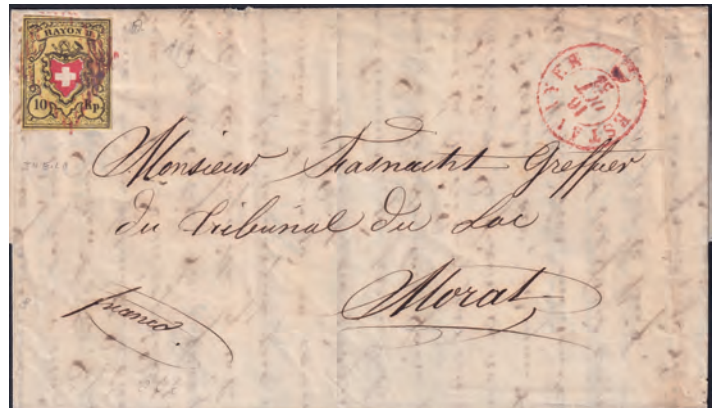 RAYON II.
10 Rp.
ESTAVAYER
Monsieur Fasnacht Greffier
du Tribunal du Lac
Morat
franco.